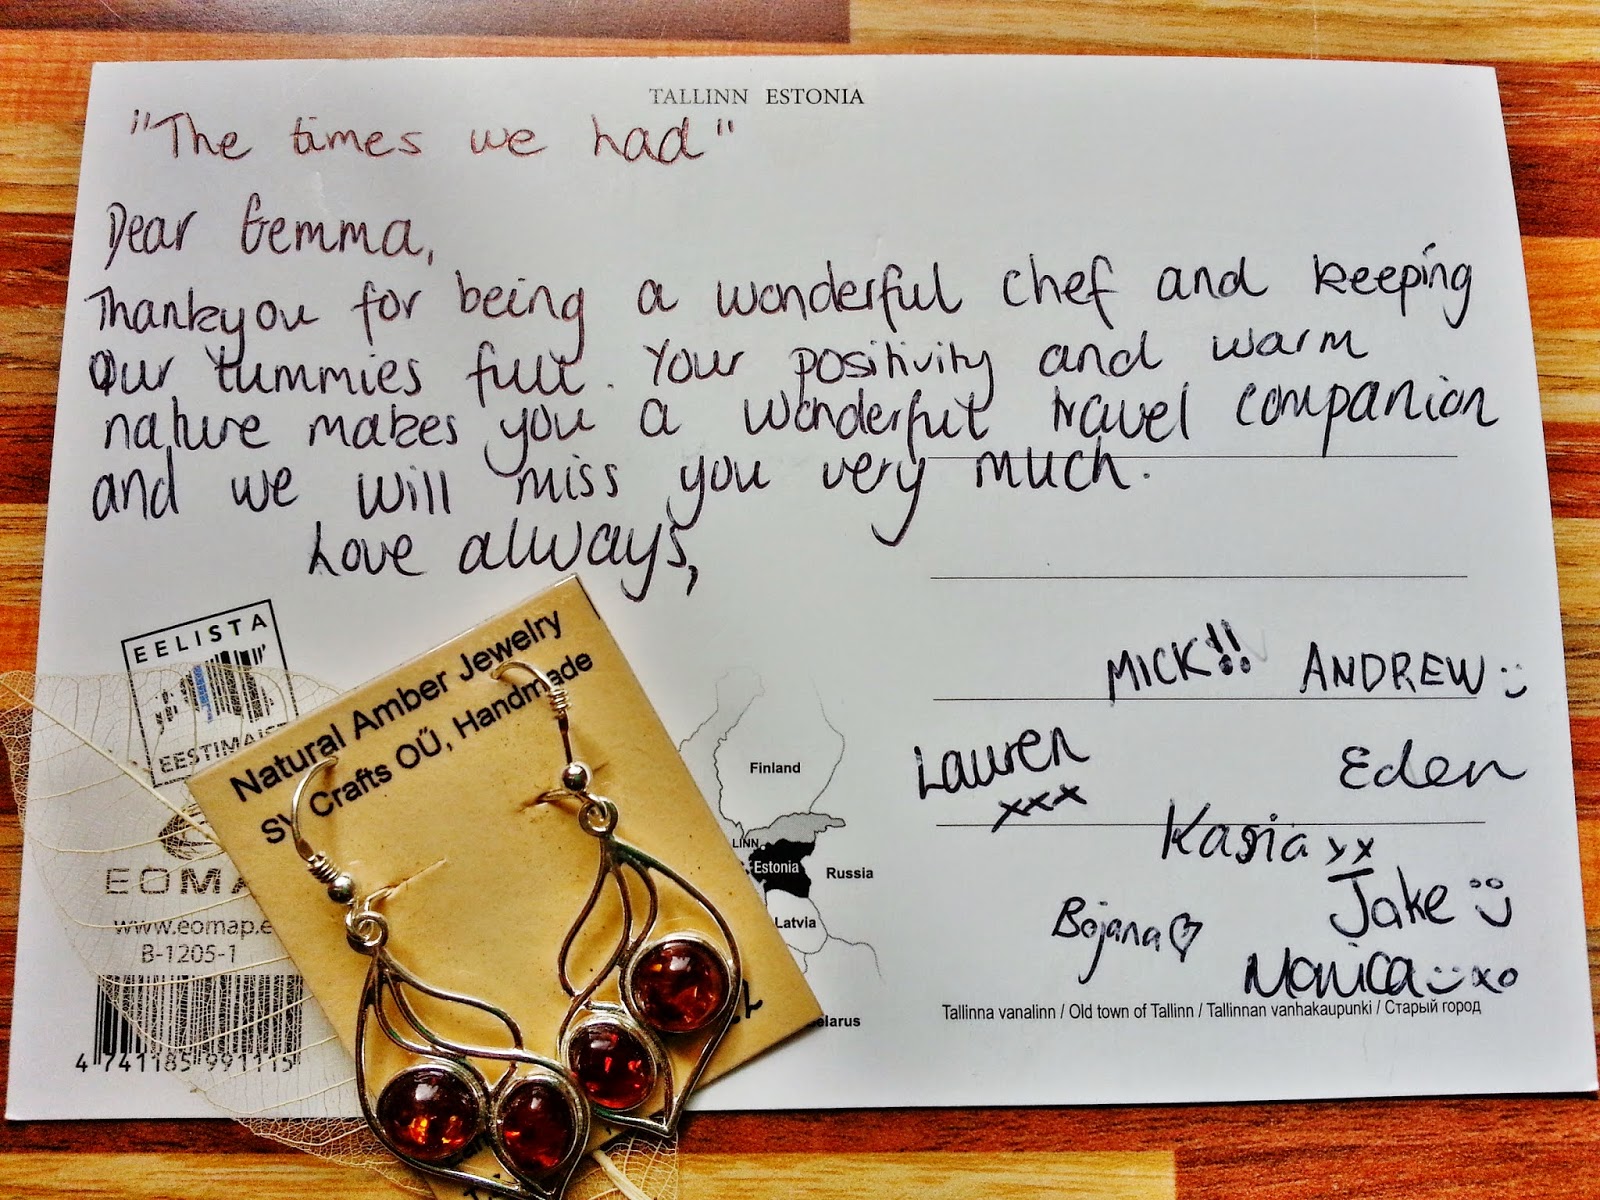 TALLINN ESTONIA
"The times we had"
Dear Gemma,
Thankyou for being a wonderful chef and keeping
Our tummies full. Your positivity and warm
nature makes you a wonderful travel companion
and we will miss you very much.
Love always,
EELISTA
EESTIMAIST
EOMA
www.eomap.e
B-1205-1
4 741185 991115
Natural Amber Jewelry
Crafts OÜ, Handmade
Finland
LINN
Estonia
Russia
Latvia
elarus
MICK!!
ANDREW
Lauren
xxx
Eden
Kasia xx
Jake
Bojana
Monica xo
Tallinna vanalinn / Old town of Tallinn / Tallinnan vanhakaupunki / Старый город